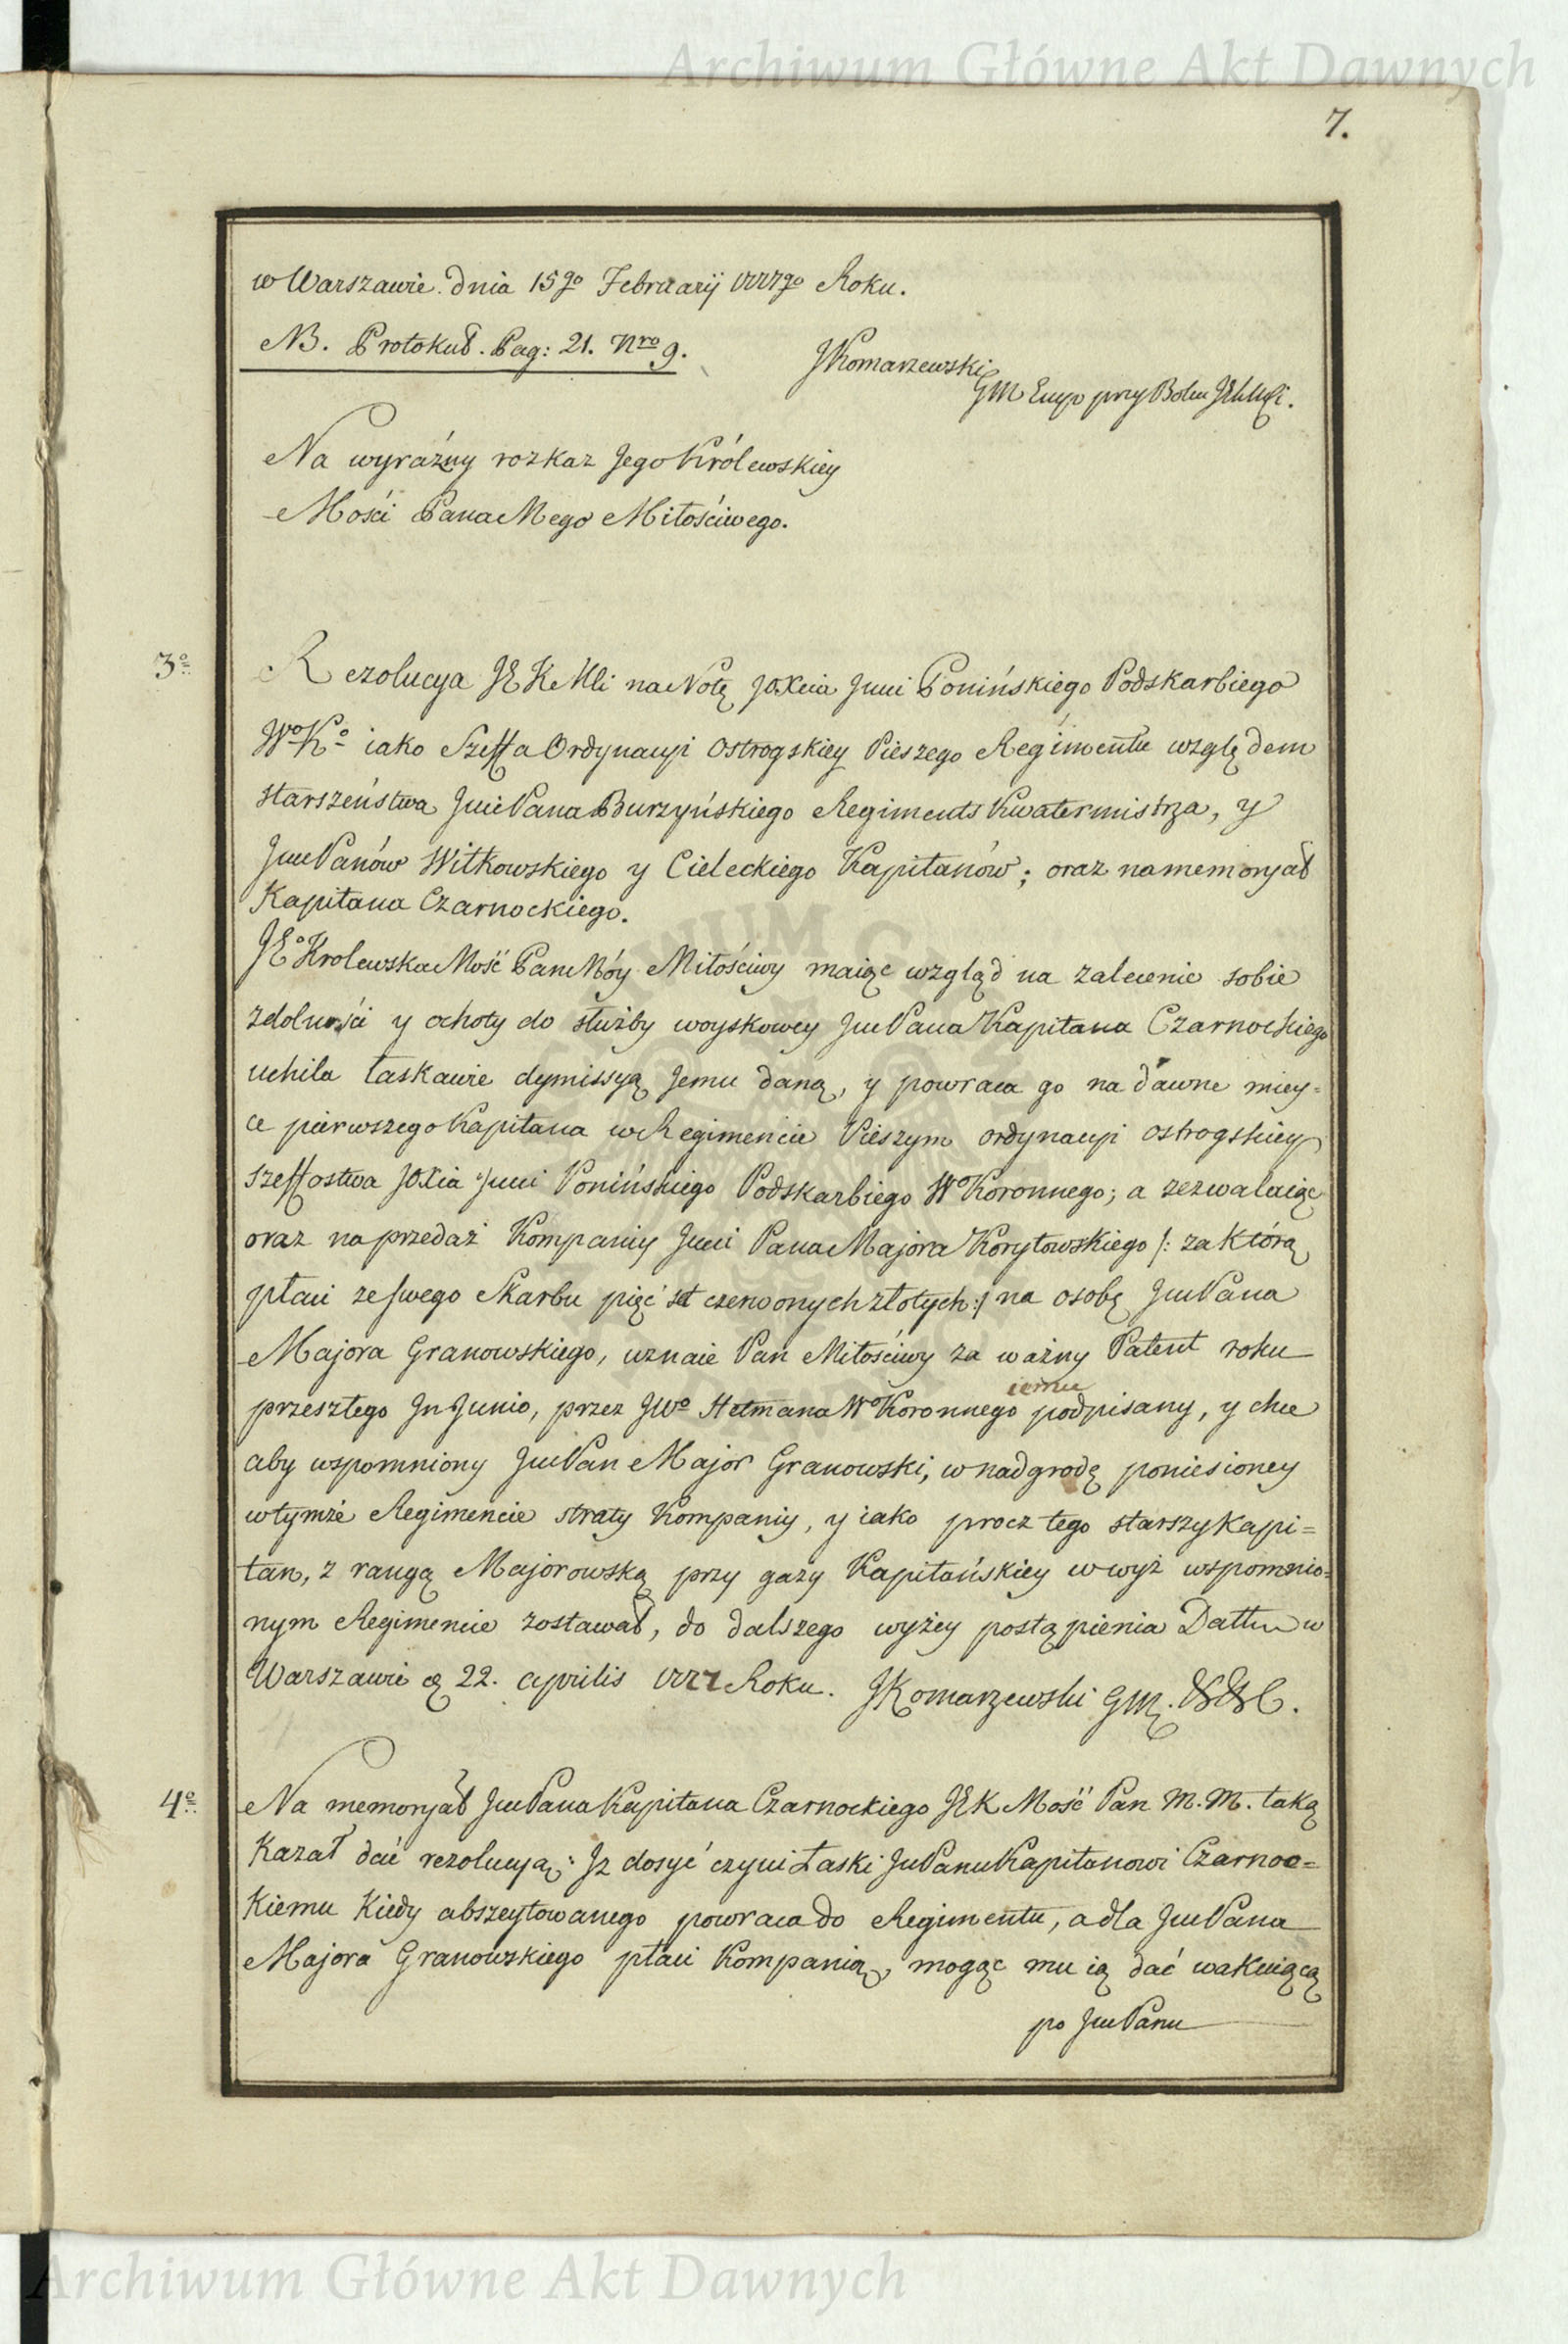 Archiwum Główne Akt Dawnych
7.
w Warszawie. dnia 15go Februarij 1777go Roku.
NB. Protokuł. Pag: 21. Nro 9.
JKomarzewski
GM Exyo przy Boku JKMci.
Na wyraźny rozkaz Jego Królewskiey
Mości Pana Mego Miłościwego.
3o
Rezolucya JEKMci na Notę JOXcia Jmci Ponińskiego Podskarbiego
WoKo iako Szeffa Ordynacyi Ostrogskiey Pieszego Regimentu względem
starszeństwa Jmc Pana Burzyńskiego Regiments Kwatermistrza, y
Jmc Panów Witkowskiego y Cieleckiego Kapitanów; oraz na memoryał
Kapitana Czarnockiego.
JEo Krolewska Mość Pan Móy Miłościwy maiąc wzgląd na zalecenie sobie
zdolności y ochoty do służby woyskowey Jmc Pana Kapitana Czarnockiego
uchila łaskawie dymissyą Jemu daną, y powraca go na dawne miey-
ce pierwszego Kapitana w Regimencie Pieszym ordynacyi ostrogskiey
szeffostwa JOXia Jmci Ponińskiego Podskarbiego Wo Koronnego; a zezwalaiąc
oraz na przedaż Kompaniy Jmci Pana Majora Korytowskiego /: za którą
płaci ze swego Skarbu pięć set czerwonych złotych :/ na osobę Jmc Pana
Majora Granowskiego, uznaie Pan Miłościwy za ważny Patent roku
przeszłego In Junio, przez JWo Hetmana Wo Koronnego iemu podpisany, y chce
aby wspomniony Jmc Pan Major Granowski, w nadgrodę poniesioney
w tymże Regimencie straty Kompaniy, y iako procz tego starszy Kapi=
tan, z rangą Majorowską przy gaży Kapitańskiey w wyż wspomnio=
nym Regimencie zostawał, do dalszego wyżey postąpienia Dattum w
Warszawie 22. Aprilis 1777 Roku. JKomarzewski GM.
4o
Na memoryał Jmc Pana Kapitana Czarnockiego JEK Mość Pan M. M. taką
Kazał dać rezolucyą: Iz dosyć czyni Łaski Jmc Panu Kapitanowi Czarnoc=
Kiemu Kiedy abszeytowanego powraca do Regimentu, a dla Jmc Pana
Majora Granowskiego płaci Kompanią, mogąc mu ią dać wakuiącą
po Jmc Panu
Archiwum Główne Akt Dawnych